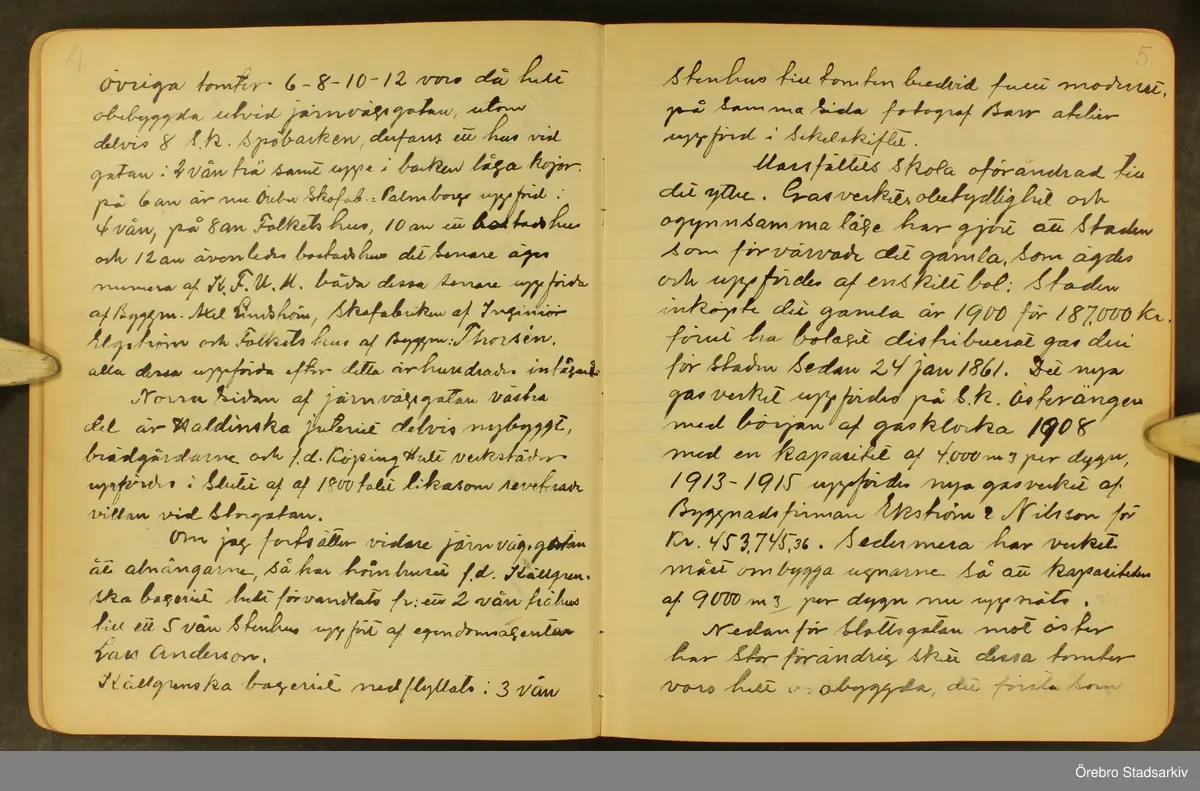 4.
övriga tomter 6-8-10-12 voro då helt
obebyggda utvid järnvägsgatan, utom
delvis 8 S.k. Spöbacken, därfans ett hus vid
gatan i 2 vån trä samt uppe i backen låga kojor.
på 6an är nu Örebro Skofab. Palmborgs uppförd i
4 vån, på 8an Folkets hus, 10an ett bostadshus
och 12an ävenledes bostadshus det senare äges
numera af K.F.U.M. båda dessa senare uppförda
af Byggm. Axel Lindström, Skofabriken af Ingeniör
Elgström och Folkets hus af Byggm: Thorsén.
alla dessa uppförda efter detta århundrades
Norra Sidan af järnvägsgatan västra
del är Haldinska juteriet delvis nybyggt,
brädgårdarne och f.d. Köping Hult verkstäder
uppfördes i Slutet af af 1800talet likasom reveterade
villan vid Storgatan.
Om jag fortsätter vidare järnvägsgatan
åt alnängarne, så har hörnhuset f.d. Källgren-
ska bageriet helt förvandlats fr: ett 2 vån trähus
till ett 5 vån Stenhus uppfört af egendomsagenten
Lars Anderson.
Källgrenska bageriet nedflyttats i 3 vån
5.
Stenhus till tomten bredvid fullt modernt,
på Samma Sida fotograf Barr atelier
uppförd i Sekelskiftet.
Marsfältets Skola oförändrad till
det yttre. Gasverkets obetydlighet och
ogynnsamma läge har gjort att Staden
som förvärvade det gamla, som ägdes
och uppfördes af enskilt bol: Staden
inköpte det gamla år 1900 för 187,000 Kr.
förut ha bolaget distribuerat gas
för Staden Sedan 24 jan 1861. Det nya
gasverket uppfördes på S.k. Österängen
med början af gasklocka 1908
med en kapasitet af 4,000 m3 per dygn,
1913-1915 uppfördes nya gasverket af
Byggnadsfirman Ekström & Nilsson för
Kr. 453,745,36. Sedermera har verket
måst ombygga ugnarne så att kapasiteten
af 9000 m3 per dygn nu uppnåts.
Nedanför Slottsgatan mot öster
har Stor förändrig skett dessa tomter
voro helt obyggda, det första som
Örebro Stadsarkiv